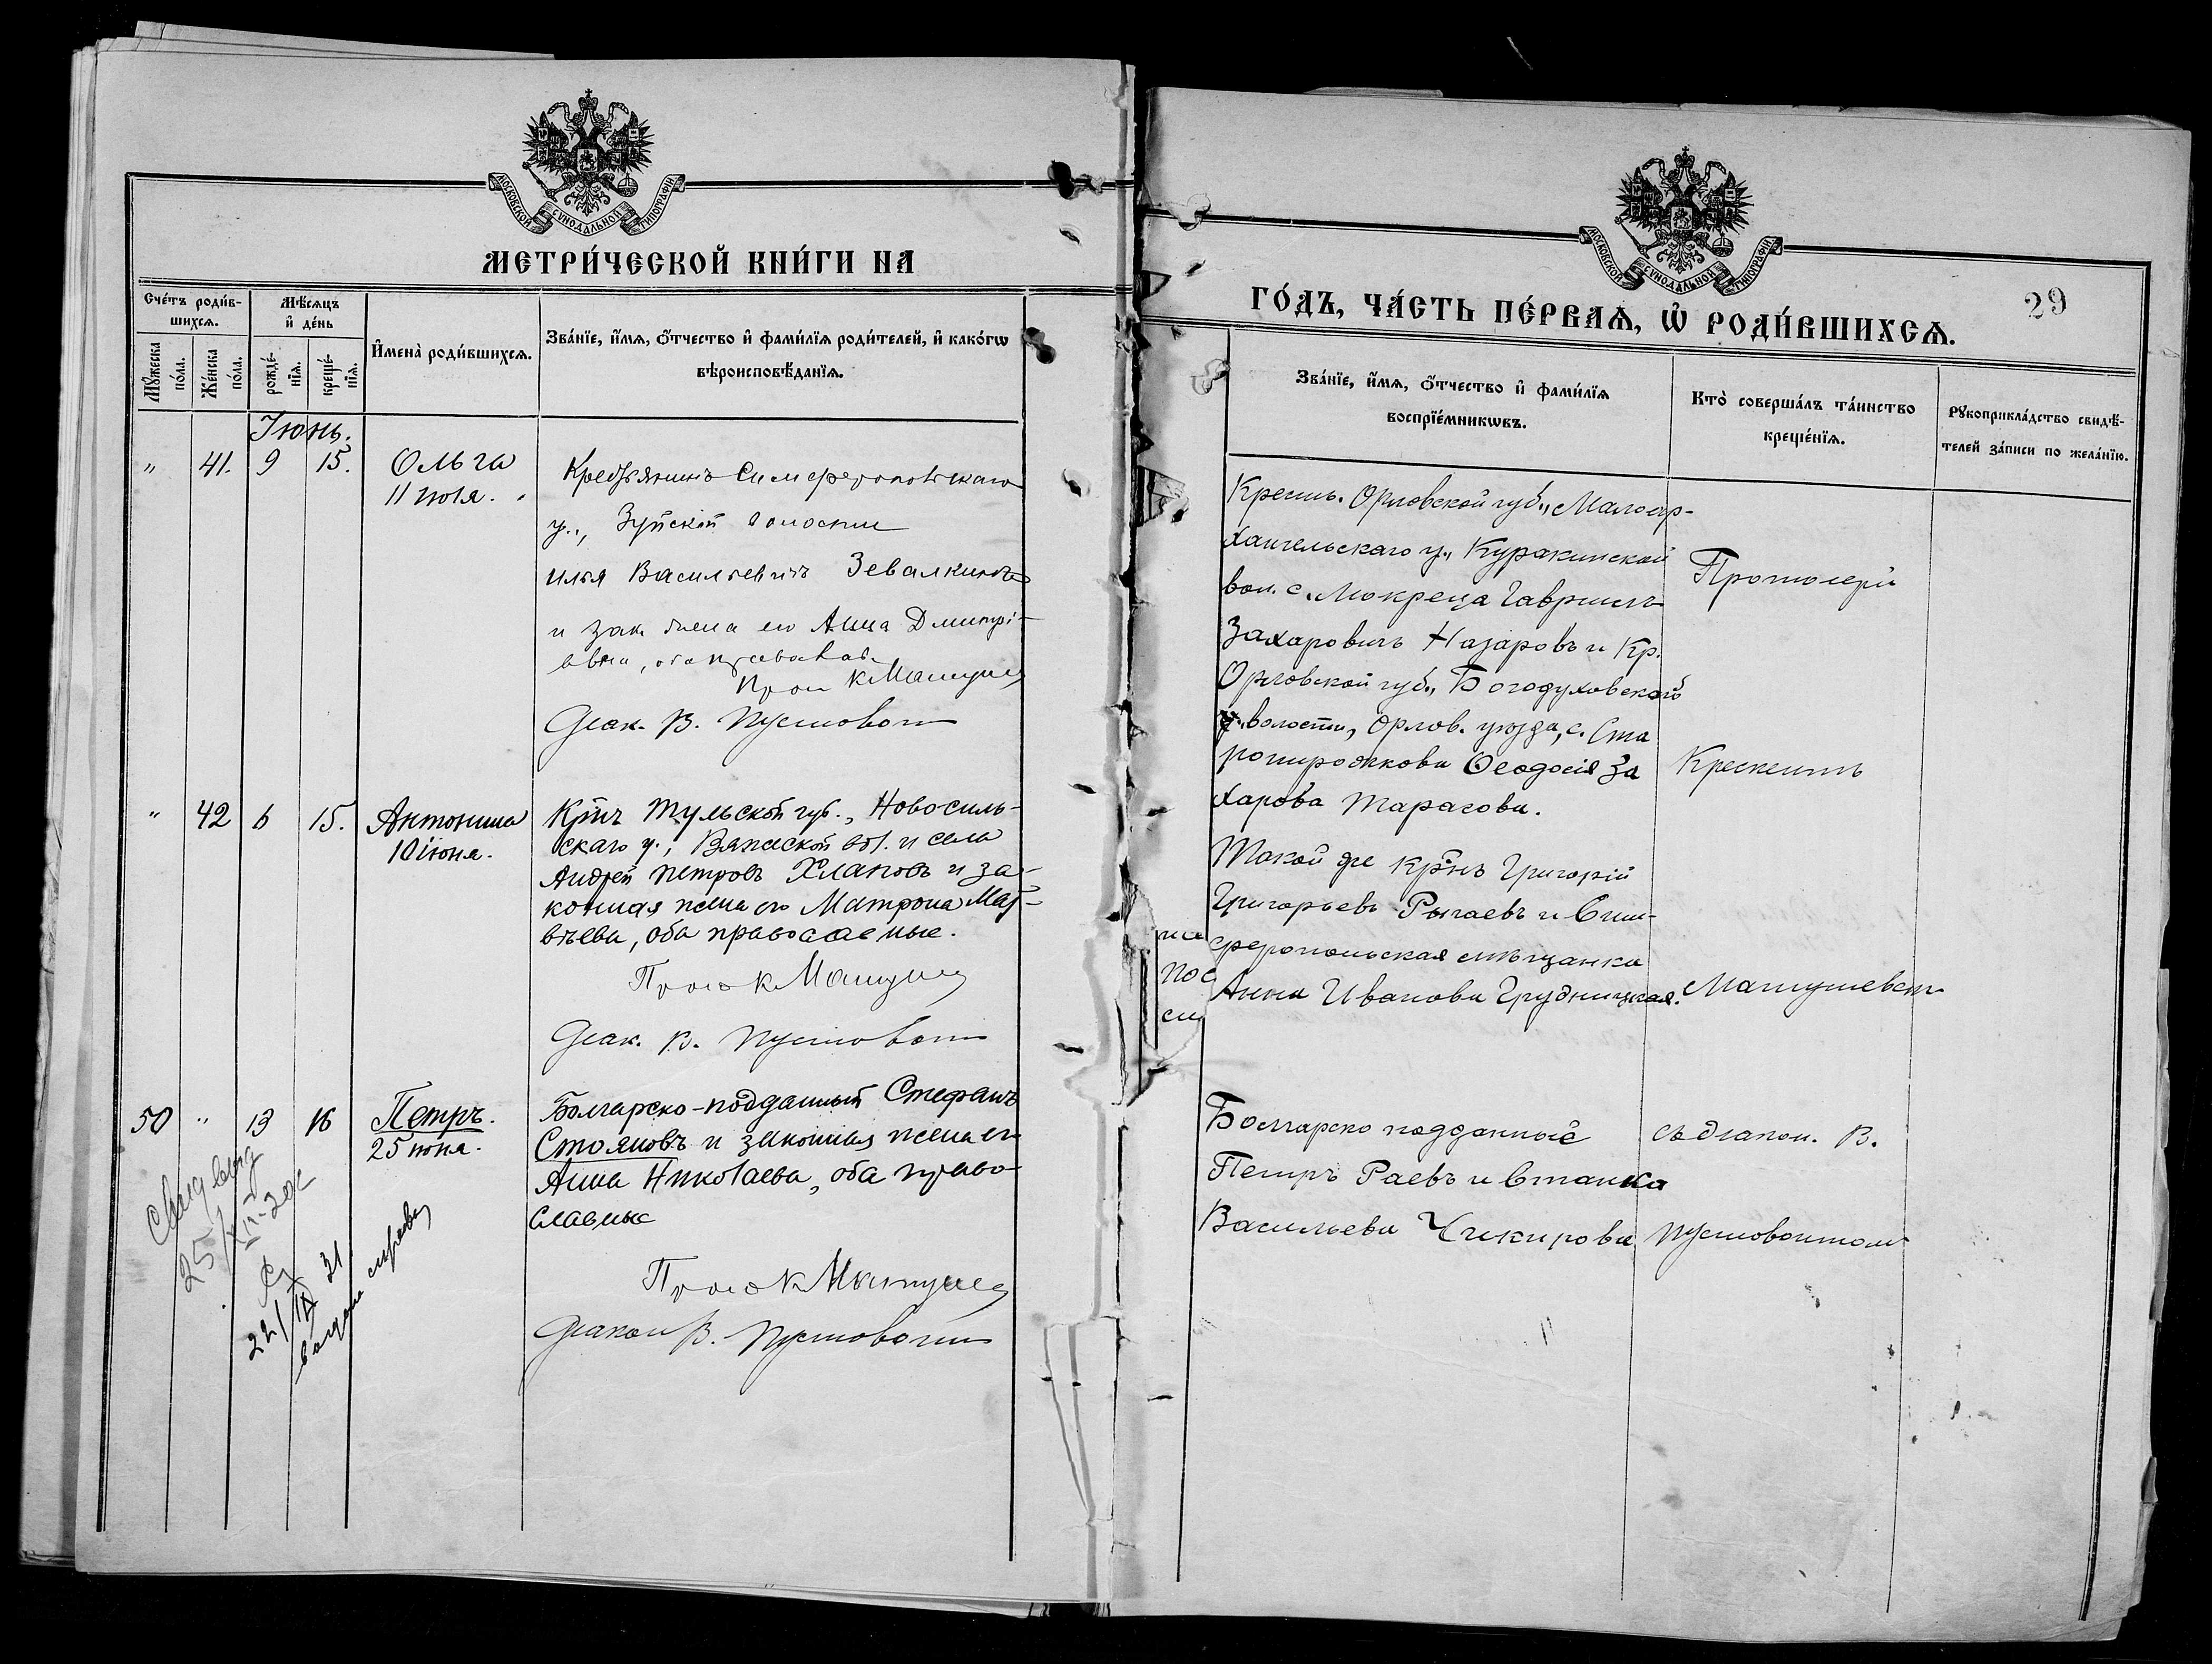 МОСКОВСКОЙ СѴНОДАЛЬНОЙ ТИПОГРАФІИ
МЕТРИ́ЧЕСКОЙ КНИ́ГИ НА
Сче́тъ роди́в-
шихся.
Мѣ́сяцъ
и҆ де́нь
Мꙋ́жеска
по́ла.
Же́нска
по́ла.
рожде́-
нїя.
креще́-
нїя.
И҆мена̀ роди́вшихся.
Зва́нїе, и҆́мя, ѻ҆́тчество и҆ фами́лїя роди́телей, и҆ како́гѡ
вѣроисповѣ́данїя.
Іюнь.
" 41. 9 15. Ольга
11 июля.
Крестьянинъ Симферопольскаго
у., Зуйской волости
Илья Васильевичъ Зевалкинъ
и зак. жена его Анна Дмитрі-
евна, оба православн.
Прот К Матуше
Діак. В. Пустовойт
" 42 6 15. Антонина
10 іюня.
Кр̃нъ Тульской губ., Новосиль-
скаго у., Вяжеской вол. и села
Андрей Петровъ Хлаповъ и за-
конная жена его Матрона Мат-
вѣева, оба православные.
Прот К Матуше
Діак. В. Пустовойт
50 " 13 16 Петръ.
25 июня.
Болгарско-подданный Стефанъ
Стояновъ и законная жена его
Анна Николаева, оба право-
славные
Прот К Матуше
Діакон В. Пустовойт
25/XII-20 г
22/IX 31
выдана справка
МОСКОВСКОЙ СѴНОДАЛЬНОЙ ТИПОГРАФІИ
ГО́ДЪ, ЧА́СТЬ ПЕ́РВАЯ, Ѡ҆ РОДИ́ВШИХСЯ.
29
Зва́нїе, и҆́мя, ѻ҆́тчество и҆ фами́лїя
воспрїе́мникѡвъ.
Кто̀ соверша́лъ та́инство
креще́нїя.
Рꙋкоприкла́дство свидѣ́-
телей за́писи по жела́нїю.
Крест. Орловской губ., Малоар-
хангельскаго у., Куракинской
вол. с. Мокреца Гавриилъ
Захаровичъ Назаровъ и Кр.
Орловской губ., Богодуховской
волости, Орлов. уѣзда, с. Ста
Ѳеодосія За
харова Тарасова.
Протоіерей
Крескентъ
Матушевск
Такой же кр̃нъ Григорій
Григорьевъ Рыгаевъ и Сим-
феропольская мѣщанка
Анна Иванова Грудницкая.
пос
Болгарско подданные
Петръ Раевъ и Станка
Васильева Чикирова
съ діакон. В.
Пустовойтом